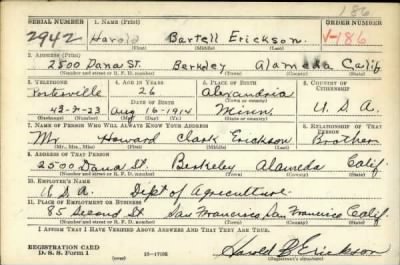 186
SERIAL NUMBER 1. NAME (Print) ORDER NUMBER
2942 Harold Bartell Erickson V-186
(First) (Middle) (Last)
2. ADDRESS (Print)
2500 Dana St. Berkley Alameda Calif
(Number and street or R. F. D. number) (Town) (County) (State)
3. TELEPHONE 4. AGE IN YEARS 5. PLACE OF BIRTH 6. COUNTRY OF CITIZENSHIP
Porterville 26 Alexandria
DATE OF BIRTH (Town or county)
43-J-23 Aug 16-1914 Minn. U.S.A.
(Exchange) (Number) (Mo.) (Day) (Yr.) (State or country)
7. NAME OF PERSON WHO WILL ALWAYS KNOW YOUR ADDRESS 8. RELATIONSHIP OF THAT PERSON
Mr Howard Clark Erickson Brother
(Mr., Mrs., Miss) (First) (Middle) (Last)
9. ADDRESS OF THAT PERSON
2500 Dana St. Berkeley Alameda Calif.
(Number and street or R. F. D. number) (Town) (County) (State)
10. EMPLOYER'S NAME
U.S.A. Dept of Agriculture
11. PLACE OF EMPLOYMENT OR BUSINESS
85 Second St San Francisco San Francisco Calif.
(Number and street or R. F. D. number) (Town) (County) (State)
I AFFIRM THAT I HAVE VERIFIED ABOVE ANSWERS AND THAT THEY ARE TRUE.
REGISTRATION CARD
D. S. S. Form 1 16-17105 Harold B Erickson
(Registrant's signature)